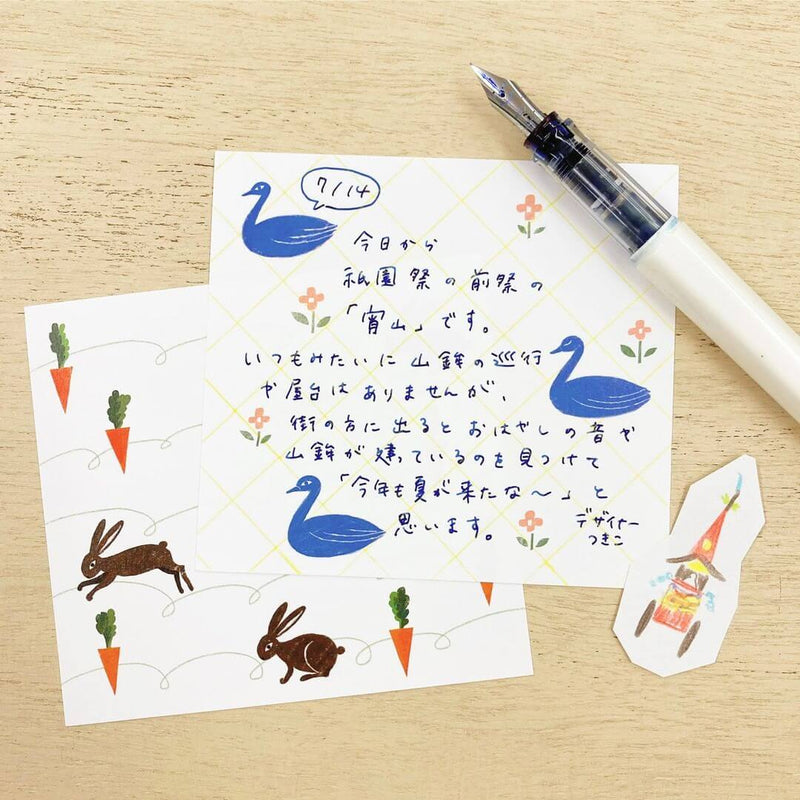 7/14
今日から
祇園祭の前祭の
「宵山」です。
いつもみたいに山鉾の巡行
や屋台はありませんが、
街の方に出るとおはやしの音や
山鉾が建っているのを見つけて
「今年も夏が来たな〜」と
思います。
デザイナー
つきこ